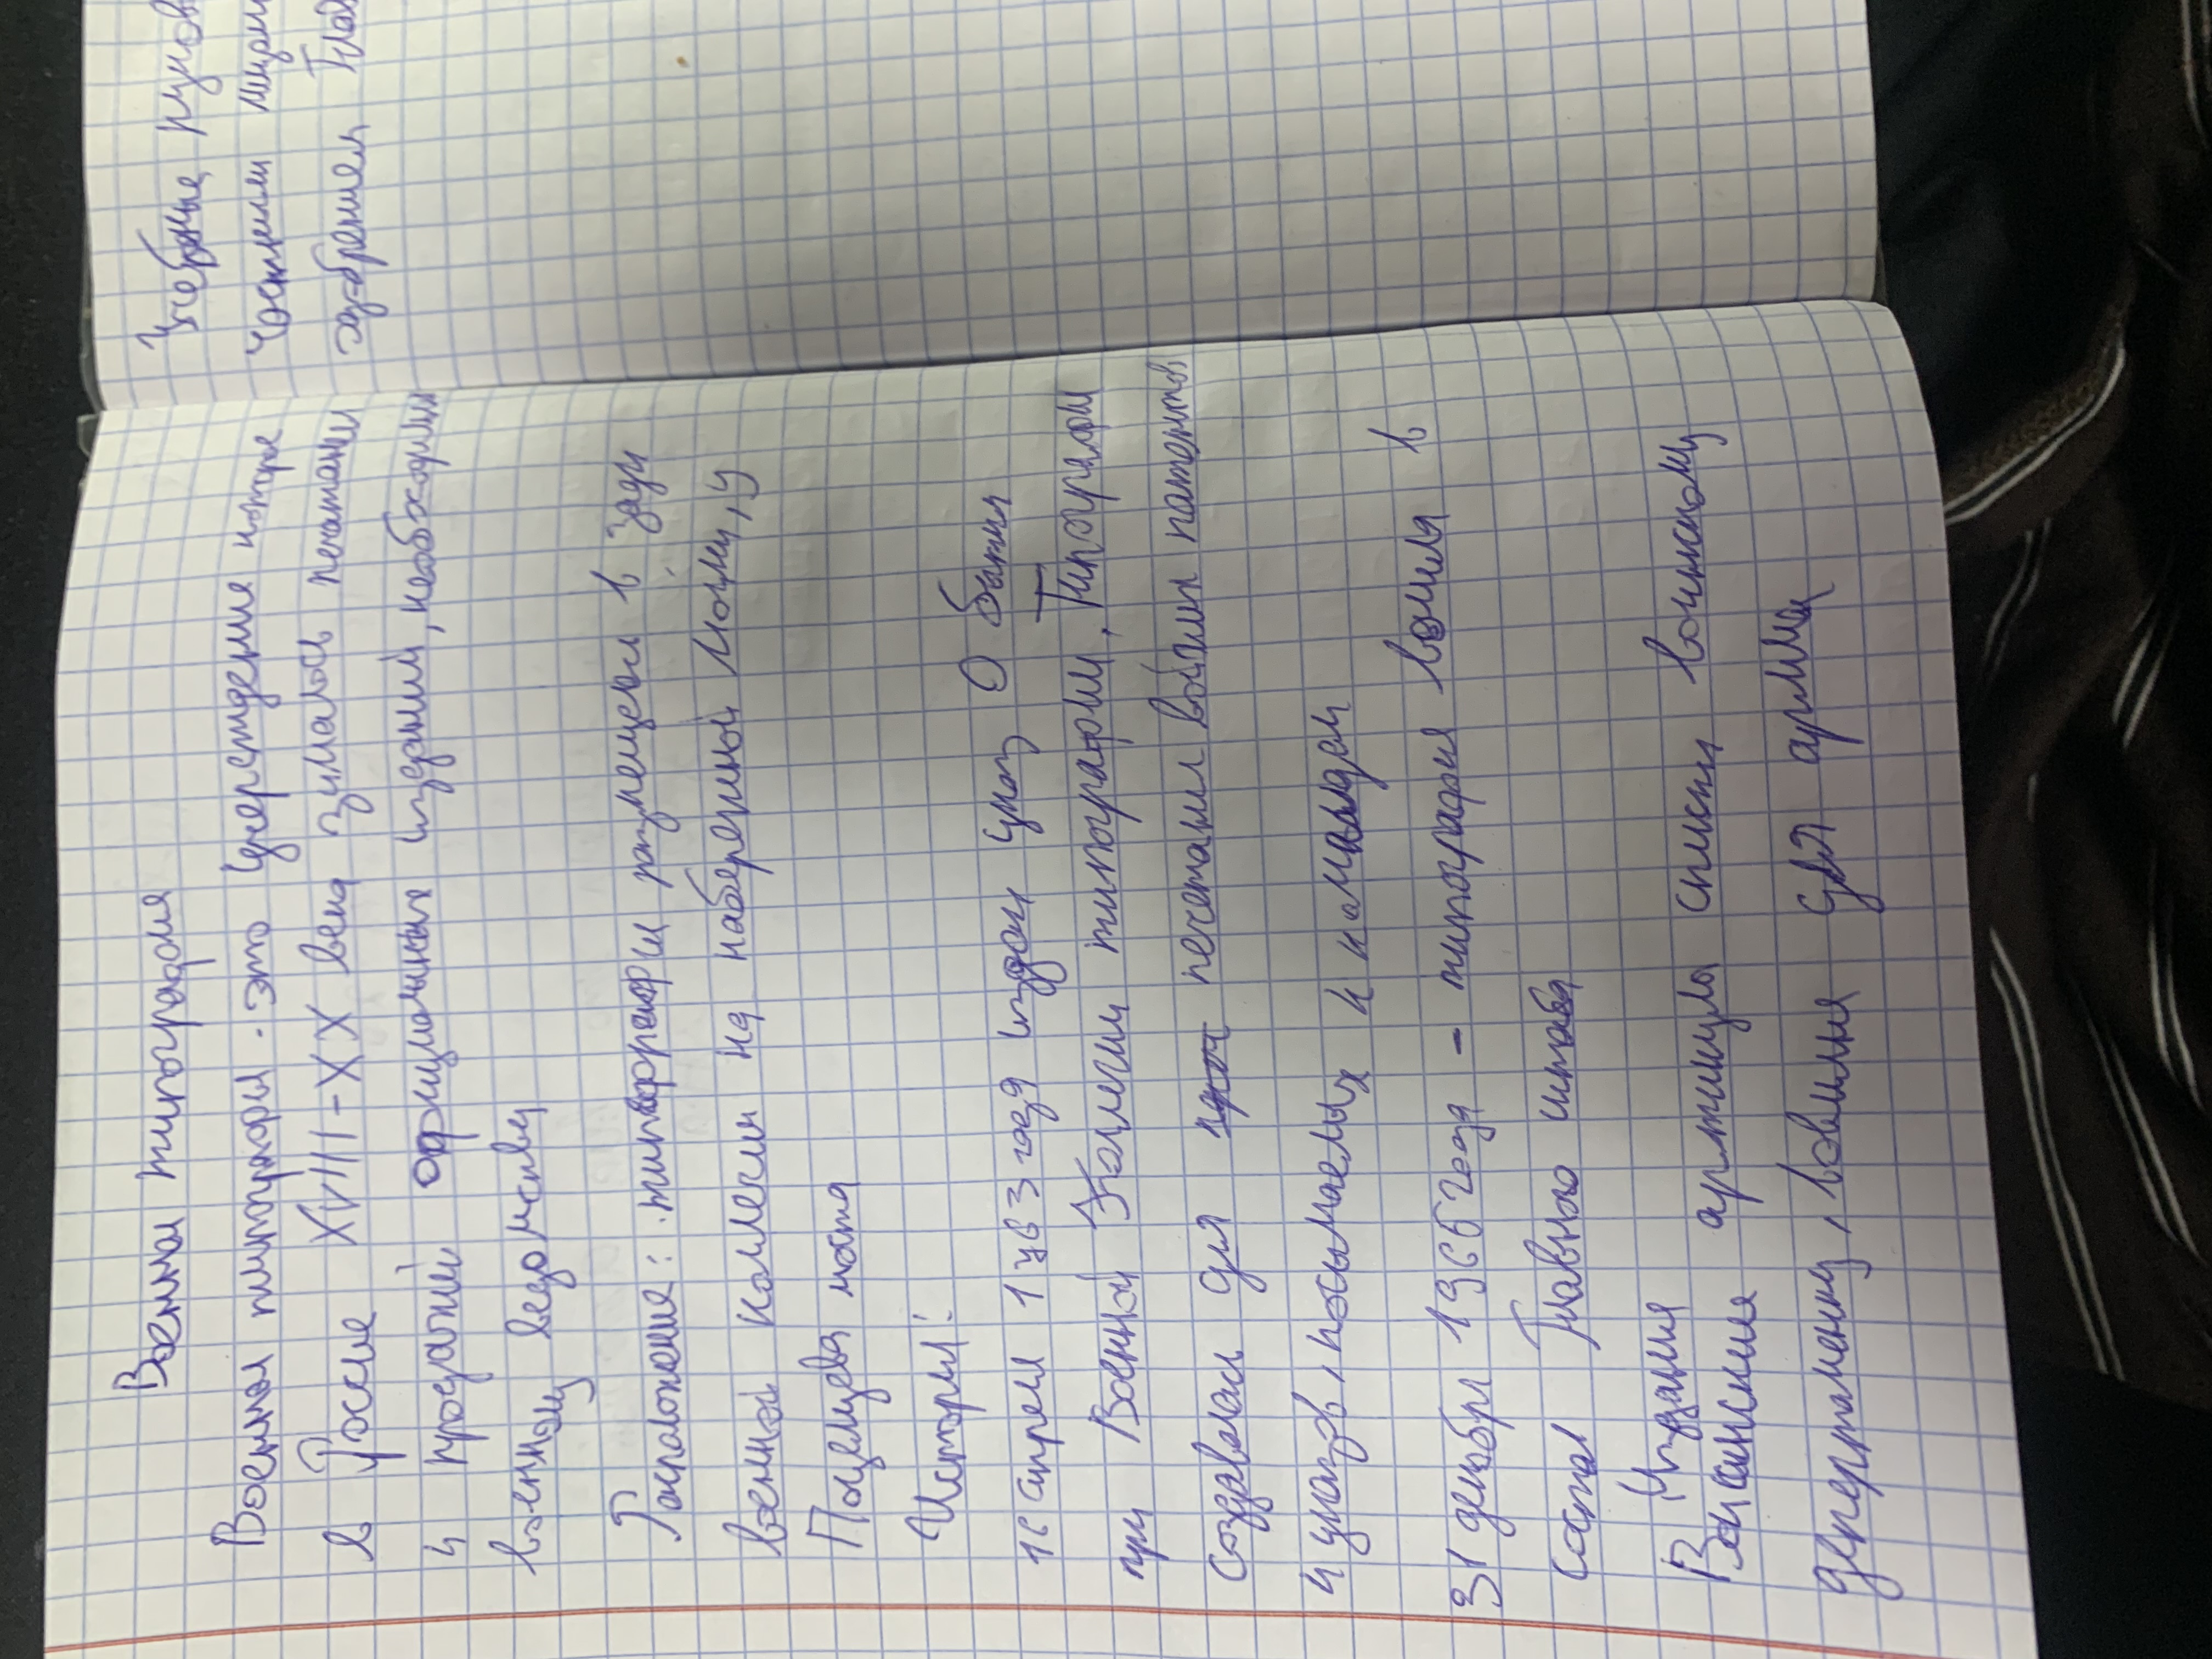 Военная типография
Военная типография - это учереждение которе
в Росие XVIII-XX века зималось печатани
и продажей официальных изданий, необходимы
военному ведомству
Располажение: типография размещена в зади
военной коллегии на набережной Мойки, у
Поцелуева моста
История:
апреля 1763 года издан указ О бытия
при Военной Колегии типографии, Типография
создавалась для печатания всеми патентов
и указов, посылаемых к командам
31 декабря года - типография вошла в
состав Главного штаба
Издания
Воинския артикулы списки воинскому
департаменту, воиния для армии
Учебные